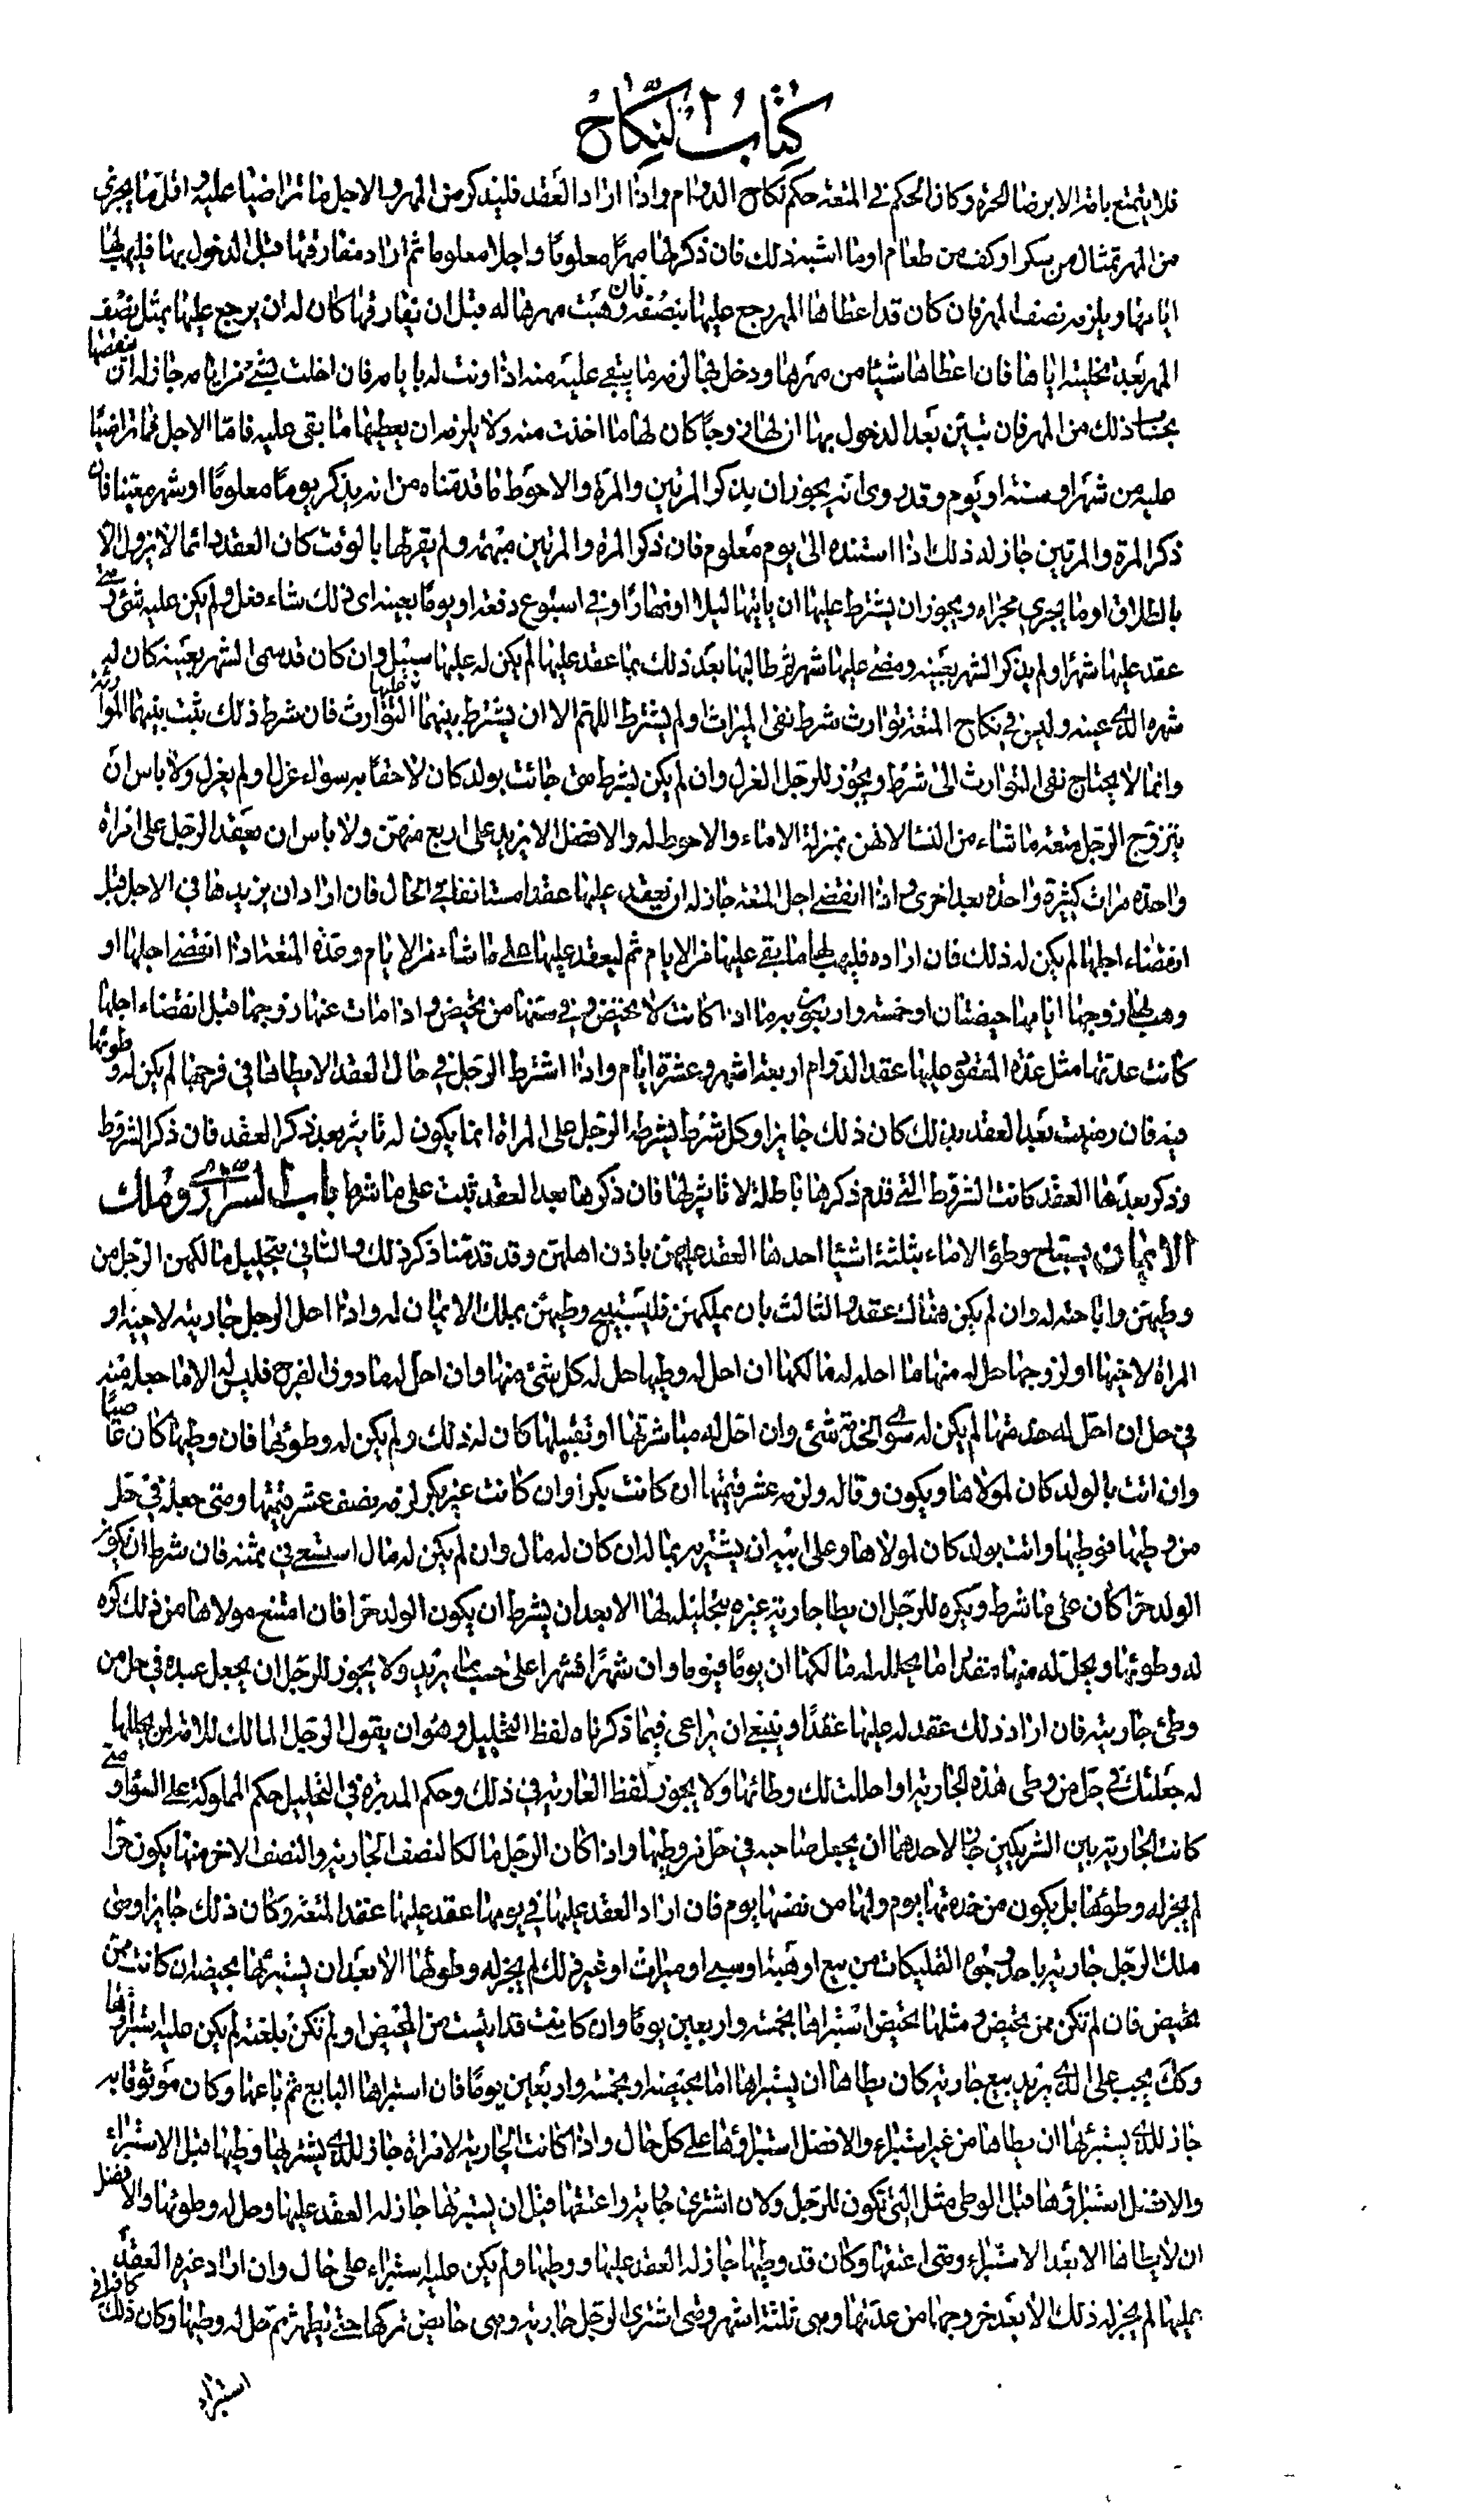 كِتَابُ النِّكَاحِ
فلا يتمتع بامة الا برضا الحرة وكان الحكم في المتعة حكم نكاح الدوام واذا اراد العقد فليذكر من المهر والاجل ما تراضيا عليه واقل ما يجزى
من المهر تمثال من سكر او كف من طعام او ما اشبه ذلك فان ذكر لها مهرا معلوما واجلا معلوما ثم اراد مفارقتها قبل الدخول بها فليهب لها
ايامها ويلزمه نصف المهر فان كان قد اعطاها المهر رجع عليها بنصفه فان وهبت مهرها له قبل ان يفارقها كان له ان يرجع عليها بمثل نصف
المهر بعد تخليته اياها فان اعطاها شيئا من مهرها ودخل بها لزمه ما يبقى عليه منه اذا وفت له بايامه فان اخلت بشئ من ايامه جاز له ان ينقصها
بحساب ذلك من المهر فان تبين بعد الدخول بها ان لها زوجا كان لها ما اخذت منه ولا يلزمه ان يعطيها ما بقى عليه فاما الاجل فما تراضيا
عليه من شهر او سنة او يوم وقد روى انه يجوز ان يذكر المرتين والمرة والاحوط ما قدمناه من انه يذكر يوما معلوما او شهر معينا فان
ذكر المرة والمرتين جاز له ذلك اذا اسنده الى يوم معلوم فان ذكر المرة والمرتين مبهمة ولم يقرنها بالوقت كان العقد دائما لا يزول الا
بالطلاق او ما يجرى مجراه ويجوز ان يشترط عليها ان ياتيها ليلا او نهارا او في اسبوع دفعة او يوما بعينه اى ذلك شاء فعل ولم يكن عليه شئ ومتى
عقد عليها شهرا ولم يذكر الشهر بعينه ومضى عليها شهر ثم طالبها بعد ذلك بما عقد عليها لم يكن له عليها سبيل وان كان قد سمى الشهر بعينه كان له
شهره الذى عينه وليس في نكاح المتعة توارث شرط نفى الميراث او لم يشترط اللهم الا ان يشترط بينهما التوارث فان شرط ذلك ثبت بينهما الموارثة
وانما لا يحتاج نفى التوارث الى شرط ويجوز للرجل العزل وان لم يكن يشرط متى جائت بولد كان لاحقا به سواء عزل او لم يعزل ولا باس ان
يتزوج الرجل متعة ما شاء من النسا لانهن بمنزلة الاماء والاحوط له والافضل الا يزيد على اربع منهن ولا باس ان يعقد الرجل على امراة
واحدة مرات كثيرة واحدة بعد اخرى واذا انقضى اجل المتعة جاز له ان يعقد عليها عقدا مستانفا في الحال فان اراد ان يزيدها في الاجل قبل
انقضاء اجلها لم يكن له ذلك فان اراده فليهب لها ما بقى عليها من الايام ثم ليعقد عليها على ما شاء من الايام وعدة المتعة اذا انقضى اجلها او
وهب لها زوجها ايامها حيضتان او خمسة واربعون يوما اذا كانت لا تحيض وفي سنها من تحيض واذا مات عنها زوجها قبل انقضاء اجلها
كانت عدتها مثل عدة المعقود عليها عقد الدوام اربعة اشهر وعشرة ايام واذا اشترط الرجل في حال العقد الا يطاها في فرجها لم يكن له وطوئها
فيه فان رضيت بعد العقد بذلك كان ذلك جايزا وكل شرط يشرطه الرجل على المراة انما يكون له تاثير بعد ذكر العقد فان ذكر الشروط
وذكر بعدها العقد كانت الشروط التي قدم ذكرها باطلة لا تاثير لها فان ذكرها بعد العقد ثبت على ما شرط باب السراري وملك
الايمان يستباح وطؤ الاماء بثلثة اشيا احدها العقد عليهن باذن اهلهن وقد قدمنا ذكر ذلك والثاني بتحليل مالكهن الرجل من
وطيهن واباحته له وان لم يكن هناك عقد والثالث بان يملكهن فليستبيح وطيهن بملك الايمان له واذا احل الرجل جاريته لاخيه او
المراة لاخيها او لزوجها حل له منها ما احله له مالكها ان احل له وطيها حل له كل شئ منها وان احل له ما دون الفرج فليس له الا ما جعله منه
في حل ان احل له خدمتها لم يكن له سوى الخدمة شئ وان احل له مباشرتها او تقبيلها كان له ذلك ولم يكن له وطوئها فان وطيها كان عاصيا
وان اتت بالولد كان لمولاها ويكون رقا له ولزمه عشر قيمتها ان كانت بكرا وان كانت غير بكر لزمه نصف عشر قيمتها ومتى جعله في حل
من وطيها فوطيها واتت بولد كان لمولاها وعلى ابيه ان يشتريه بماله ان كان له مال وان لم يكن له مال استسعى في ثمنه فان شرط ان يكون
الولد حرا كان على ما شرط ويكره للرجل ان يطا جارية غيره بتحليله لها الا بعد ان يشرط ان يكون الولد حرا فان امتنع مولاها من ذلك كره
له وطوئها ويحل له منها مقدار ما يحلله له مالكها ان يوما فيوما وان شهرا فشهرا على حسب ما يريد ولا يجوز للرجل ان يجعل عبده في حل من
وطئ جاريته فان اراد ذلك عقد له عليها عقدا وينبغي ان يراعى فيما ذكرناه لفظ التحليل وهو ان يقول الرجل المالك للامة لمن يحللها
له جعلتك في حل من وطى هذه الجارية او احللت لك وطائها ولا يجوز لفظ العارية في ذلك وحكم المدبرة في التحليل حكم المملوكة على السواء ومتى
كانت الجارية بين الشريكين جاز لاحدهما ان يجعل صاحبه في حل من وطيها واذا كان الرجل مالكا لنصف الجارية والنصف الاخر منها يكون حرا
لم يجز له وطوئها بل يكون من خدمتها يوم ولها من نفسها يوم فان اراد العقد عليها في يومها عقد عليها عقد المتعة وكان ذلك جايزا ومتى
ملك الرجل جارية باحد وجوه التمليكات من بيع او هبة او سبى او ميراث او غير ذلك لم يجز له وطوئها الا بعد ان يستبرئها بحيضة ان كانت ممن
تحيض فان لم تكن ممن تحيض ومثلها تحيض استبراها بخمسة واربعين يوما وان كانت قد ايئست من المحيض او لم تكن بلغته لم يكن عليه استبراؤها
وكك يجب على الذى يريد بيع جارية كان يطاها ان يستبراها اما بحيضة او بخمسة واربعين يوما فان استبراها البايع ثم باعها وكان موثوقا به
جاز للذى يستبرئها ان يطاها من غير استبراء والافضل استبراؤها على كل حال واذا كانت الجارية لامراة جاز للذى يشتريها وطيها قبل الاستبراء
والافضل استبراؤها قبل الوطى مثل التى تكون للرجل ولان اشترى جارية واعتقها قبل ان يستبرئها جاز له العقد عليها وحل له وطوئها والافضل
ان لا يطاها الا بعد الاستبراء ومتى اعتقها وكان قد وطيها جاز له العقد عليها ووطيها ولم يكن عليه استبراء على حال وان اراد غيره العقد
عليها لم يجز له ذلك الا بعد خروجها من عدتها وهى ثلثة اشهر ومتى اشترى الرجل جارية وهى حايض تركها حتى تطهر ثم حل له وطيها وكان ذلك كافيا في
استبراء